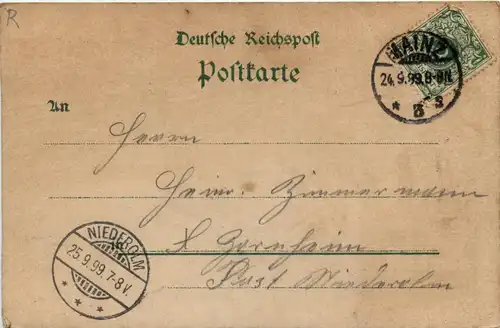 R
Deutsche Reichspost
Postkarte
MAINZ
24.9.99.8-9N.
* 3 *
An
Herrn
Heinr. Zimmermann
in X Zornheim
Post Niederolm
NIEDEROLM
25.9.99.7-8V.
* * *